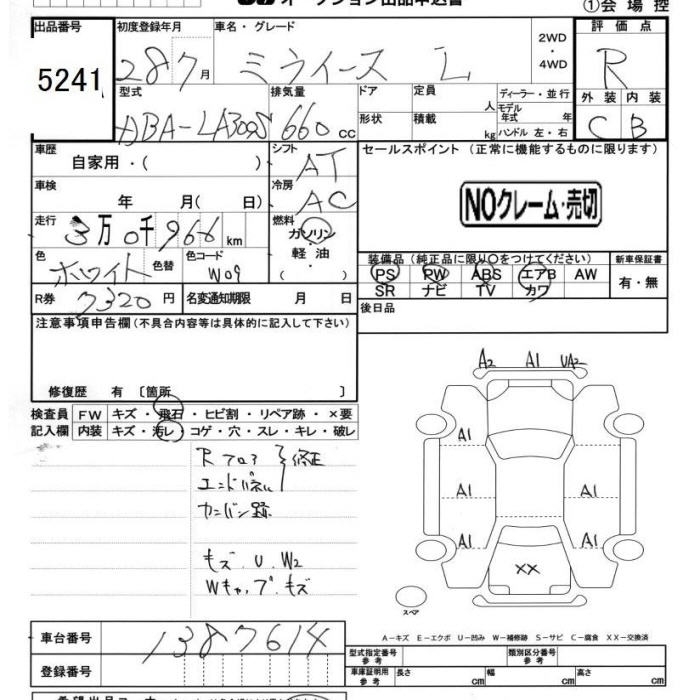 ①会場控
オークション出品申込書
出品番号
5241
初度登録年月
28 7月
車名・グレード
ミライース L
2WD
・
4WD
評価点
R
外装 内装
C B
型式
DBA-LA300S
排気量
660 cc
ドア
形状
定員 人
積載 kg
ディーラー・並行
モデル年式 年
ハンドル 左・右
車歴
自家用・( )
シフト
AT
車検
年 月( 日)
冷房
AC
走行
3万0千966km
燃料
ガソリン
・
軽油
・
( )
色
ホワイト
色替
色コード
W09
R券 7320円
名変通知期限 月 日
セールスポイント(正常に機能するものに限ります)
NOクレーム・売切
装備品(純正品に限り○をつけてください)
PS PW ABS エアB AW
SR ナビ TV カワ
新車保証書
有・無
後日品
注意事項申告欄(不具合内容等は具体的に記入して下さい)
修復歴 有 〔箇所 〕
検査員
記入欄
FW キズ・飛石・ヒビ割・リペア跡・×要
内装 キズ・汚レ・コゲ・穴・スレ・キレ・破レ
Rフロア 修正
エンドパネル
カンバン跡
キズ.U.W2
Wキャップ.キズ
A2 A1 UA2
A1
A1 A1
A1 A1
XX
スペア
A-キズ E-エクボ U-凹み W-補修跡 S-サビ C-腐食 XX-交換済
車台番号
1387614
登録番号
型式指定番号
参考
類別区分番号
参考
車庫証明用
参考
長さ cm
幅 cm
高さ cm